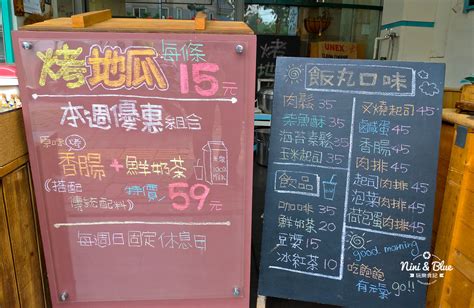 烤地瓜 每條 15元
本週優惠組合
原味
香腸+鮮奶茶
(搭配
傳統配料)
特價 59元
每週日固定休息日
飯丸口味
肉鬆 35
紫魚酥 35
海苔素鬆 35
玉米起司 35
飲品
咖啡 35
鮮奶茶 20
豆漿 15
冰紅茶 10
叉燒起司 45
鹹蛋 45
香腸 45
肉排 45
起司肉排 45
泡菜肉排 45
荷包蛋肉排 45
good morning
吃飽飽
有元氣 go!!
UNEX
Nini & Blue
玩樂食記